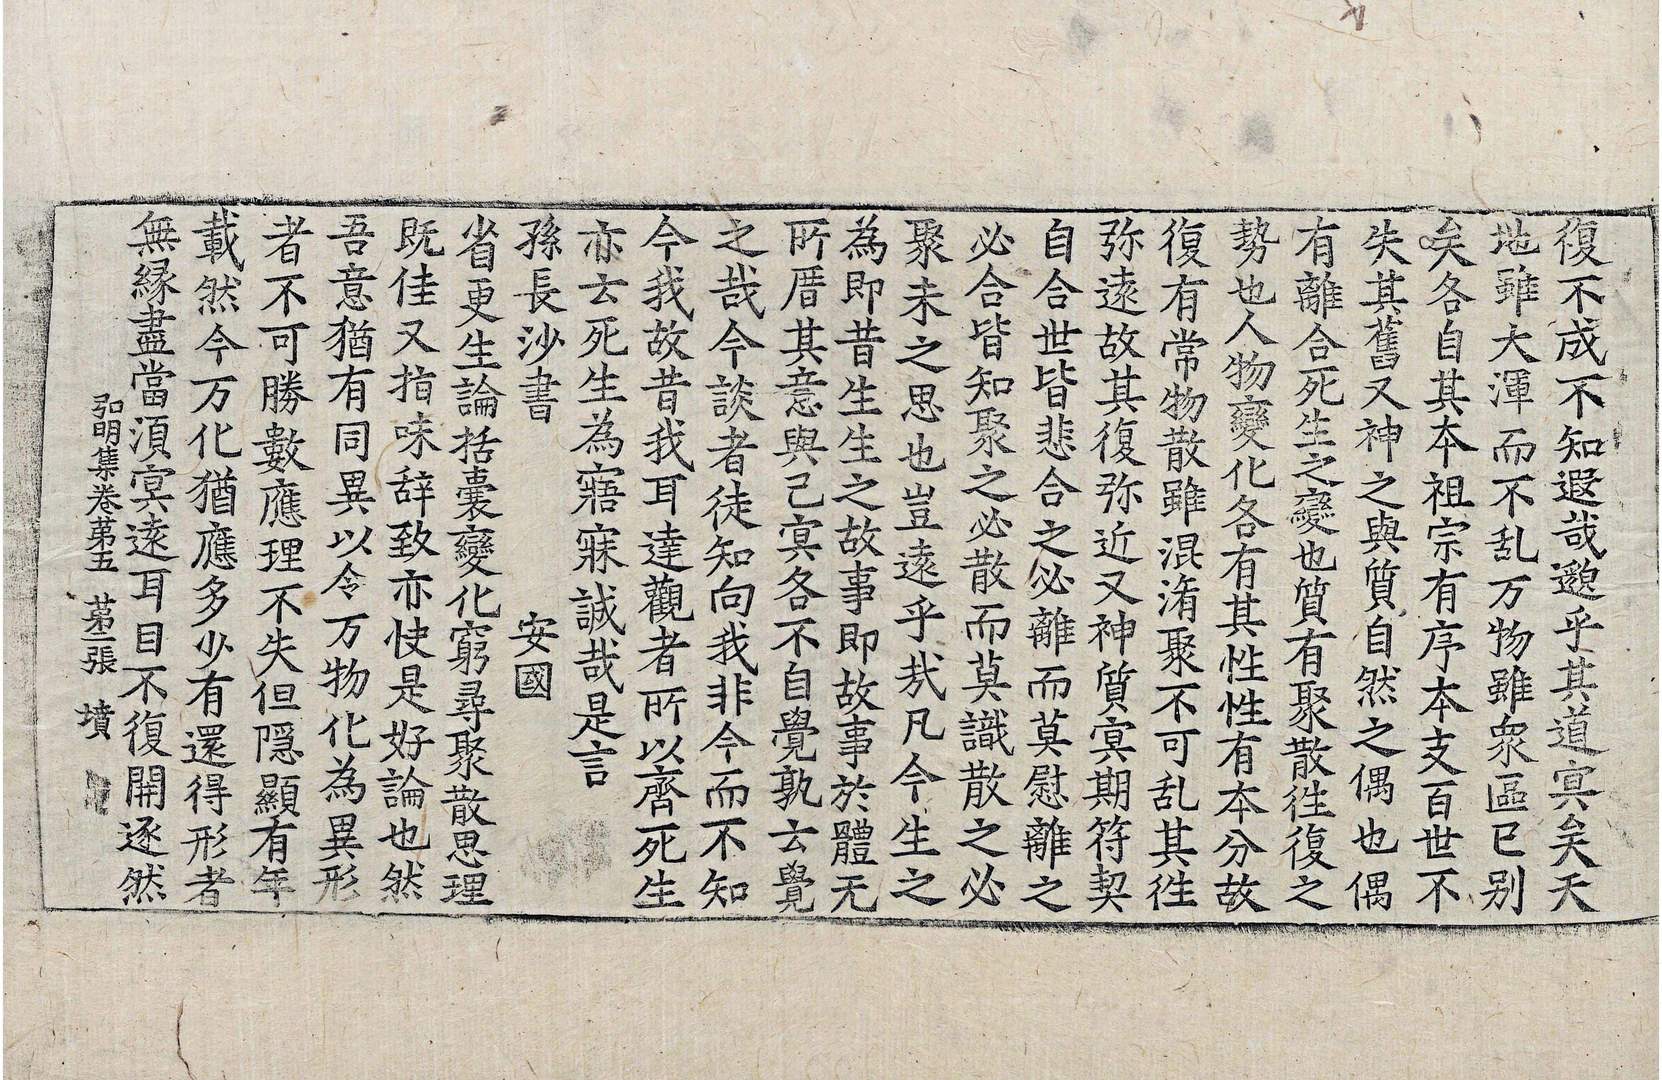 復不成不知遐哉邈乎其道㝠矣天
地雖大渾而不乱万物雖衆區已别
矣各自其本祖宗有序本支百世不
失其舊又神之與質自然之偶也偶
有離合死生之變也質有聚散徃復之
勢也人物變化各有其性性有本分故
復有常物散雖混淆聚不可乱其徃
弥遠故其復弥近又神質㝠期符契
自合世皆悲合之必離而莫慰離之
必合皆知聚之必散而莫識散之必
聚未之思也豈遠乎㦲凡今生之
為即昔生生之故事即故事於體无
所厝其意與己㝠各不自覺孰云覺
之哉今談者徒知向我非今而不知
今我故昔我耳達觀者所以齊死生
亦云死生為寤寐誠哉是言
孫長沙書　安國
省更生論括囊變化窮尋聚散思理
既佳又指味辞致亦快是好論也然
吾意猶有同異以令万物化為異形
者不可勝數應理不失但隱顯有年
載然今万化猶應多少有還得形者
無緣盡當湏㝠遠耳目不復開逐然
弘明集卷第五　第二張　墳